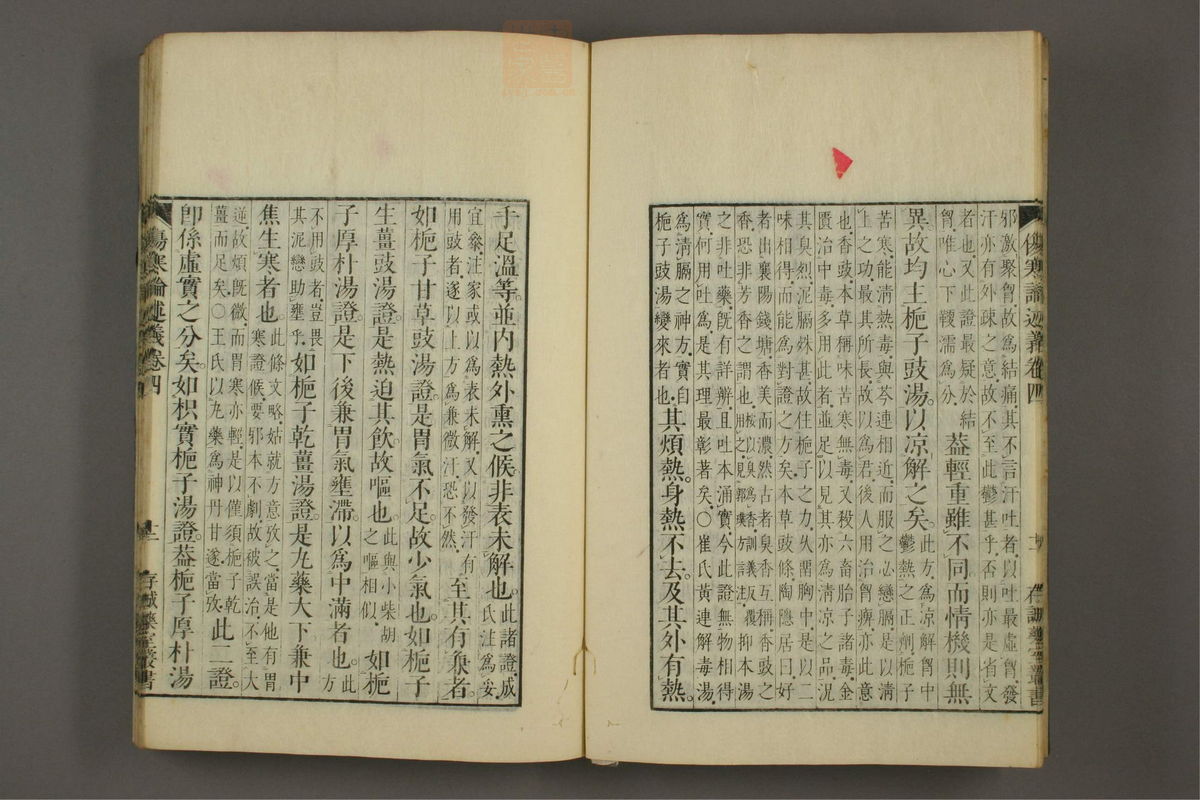 傷寒論述義卷四
存誠藥室叢書
邪激聚胷故爲結痛其不言汗吐者以吐最虛胷發
汗亦有外疎之意故不至此鬱甚乎否則亦是省文
者也又此證最疑於結
胷唯心下鞕濡爲分
葢輕重雖不同而情機則無
異故均主梔子豉湯以凉解之矣
此方爲凉解胷中
鬱熱之正劑梔子
苦寒能清熱毒與芩連相近而服之必戀膈是以淸
上之功最其所長故以爲君後人用治胷痹亦此意
也香豉本草稱味苦寒無毒又殺六畜胎子諸毒金
匱治中毒多用此者並足以見其亦爲淸凉之品況
其臭烈泥膈殊甚故住梔子之力久圉胸中是以二
味相得而能爲對證之方矣本草豉條陶隱居曰好
者出襄陽錢塘香美而濃然古者臭香互稱香豉之
香恐非芳香之謂也
抑本湯
之非吐藥旣有詳辨且吐本涌實今此證無物相得
實何用吐爲是其理最彰著矣○崔氏黃連解毒湯
爲淸膈之神方實自
梔子豉湯變來者也
其煩熱身熱不去及其外有熱
手足溫等並內熱外熏之候非表未解也
此諸證成
氏注爲妥
宜叅注家或以爲表未解又以發汗有
用豉者遂以上方爲兼微汗恐不然
至其有兼者
如梔子甘草豉湯證是胃氣不足故少氣也如梔子
生薑豉湯證是熱迫其飮故嘔也
此與小柴胡
之嘔相似
如梔
子厚朴湯證是下後兼胃氣壅滯以爲中滿者也
此
方
不用豉者豈畏
其泥戀助壅乎
如梔子乾薑湯證是丸藥大下兼中
焦生寒者也
此條文略姑就方意攷之當是他有胃
寒證候要邪本不劇故被誤治不至大
逆故煩旣微而胃寒亦輕是以僅須梔子乾
薑而足矣○王氏以丸藥爲神丹甘遂當攷
此二證
卽係虛實之分矣如枳實梔子湯證葢梔子厚朴湯
傷寒論述義卷四
十二
存誠藥室叢書